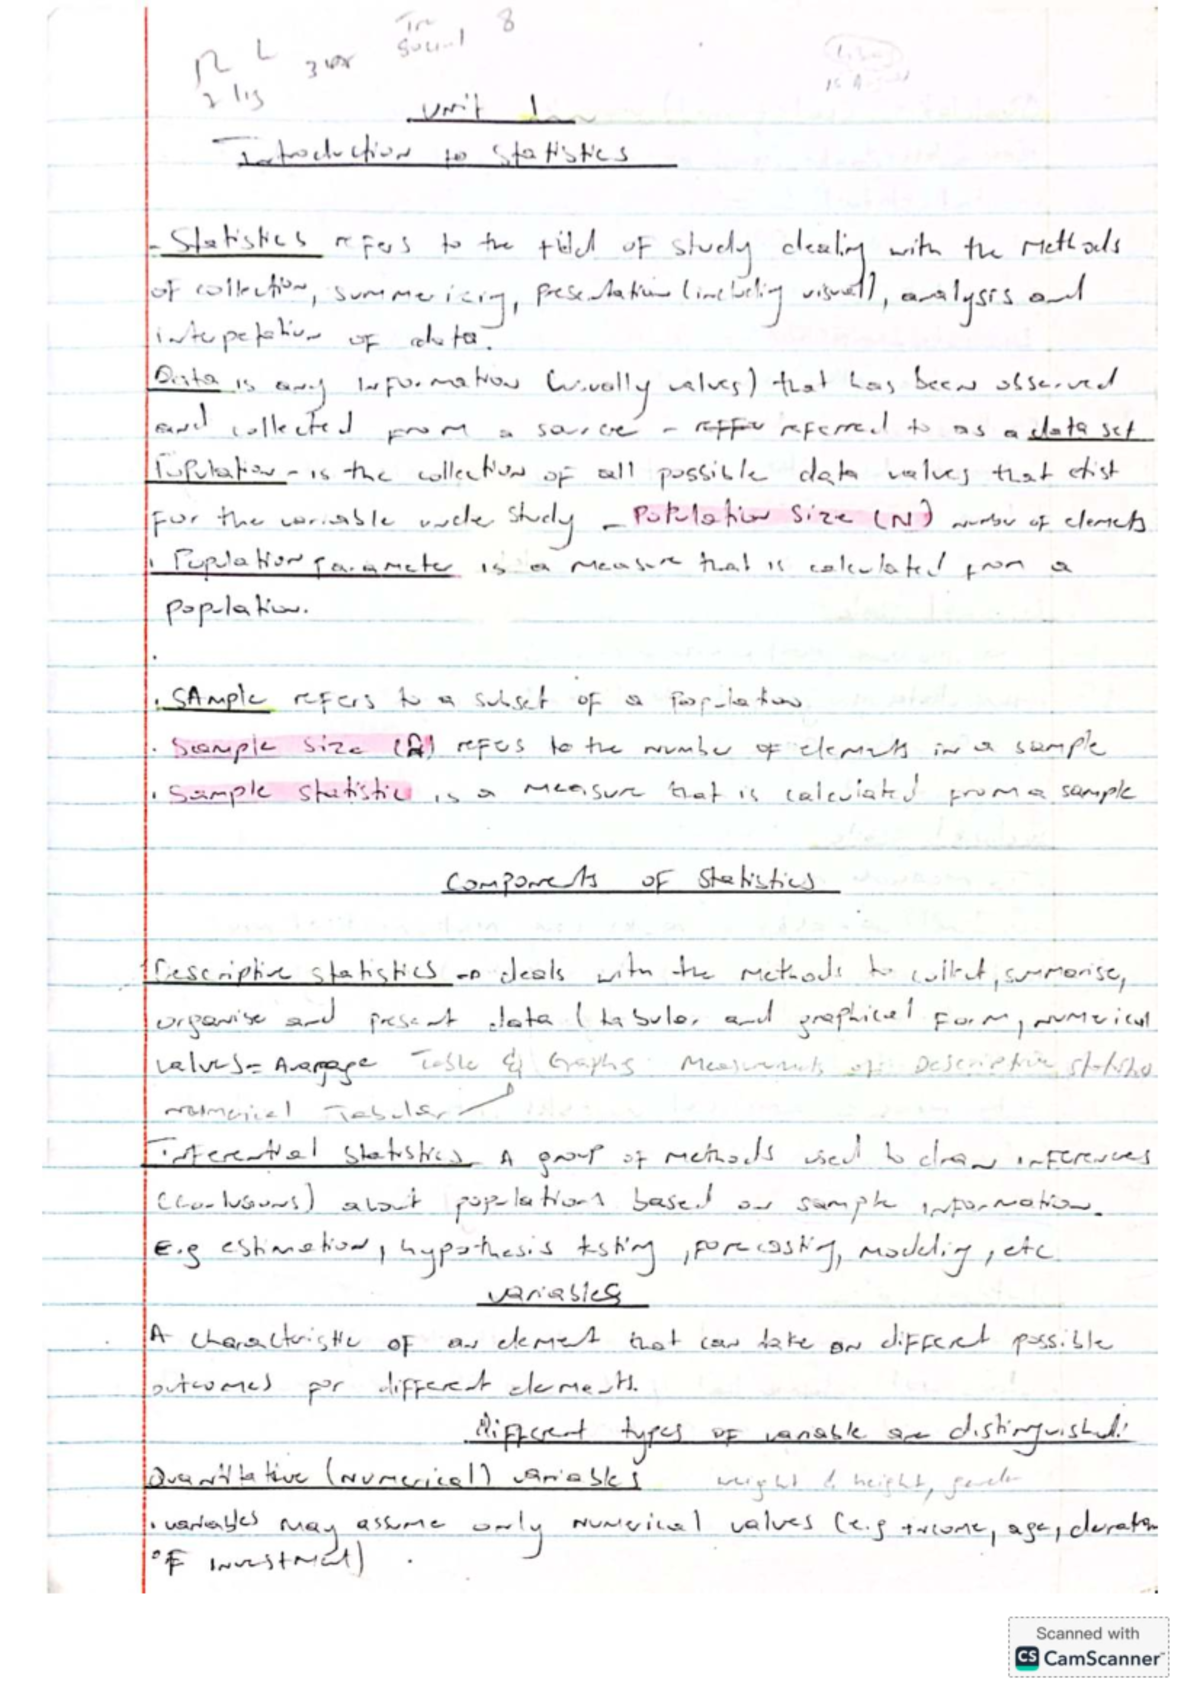 8
Unit 1
Introduction to Statistics
- Statistics refers to the field of study dealing with the methods
of collection, summerizing, presentation (including visual), analysis and
interpetation of data.
Data is any information (usually values) that has been observed
and collected from a source - referred to as a data set
Population - is the collection of all possible data values that exist
for the variable under study - Population Size (N) number of elements
. Population parameter is a measure that is calculated from a
population.
. SAmple refers to a subset of a population
. Sample size (n) refers to the number of elements in a sample
. Sample statistic is a measure that is calculated from a sample
Components of Statistics
Descriptive statistics - deals with the methods to collect, summarise,
organise and present data (tabular and graphical form, numerical
values = Average Table & Graphs Measurements of Descriptive statistics
numerical Tabular
Inferential Statistics A group of methods used to draw inferences
(conclusions) about populations based on sample information.
E.g estimation, hypothesis testing, forecasting, modeling, etc
Variables
A characteristic of an element that can take on different possible
outcomes for different elements.
Different types of variable are distinguished:
Quantitative (Numerical) variables weight & height, gender
. variables may assume only numerical values (e.g income, age, duration
of investment)
Scanned with
CS CamScanner